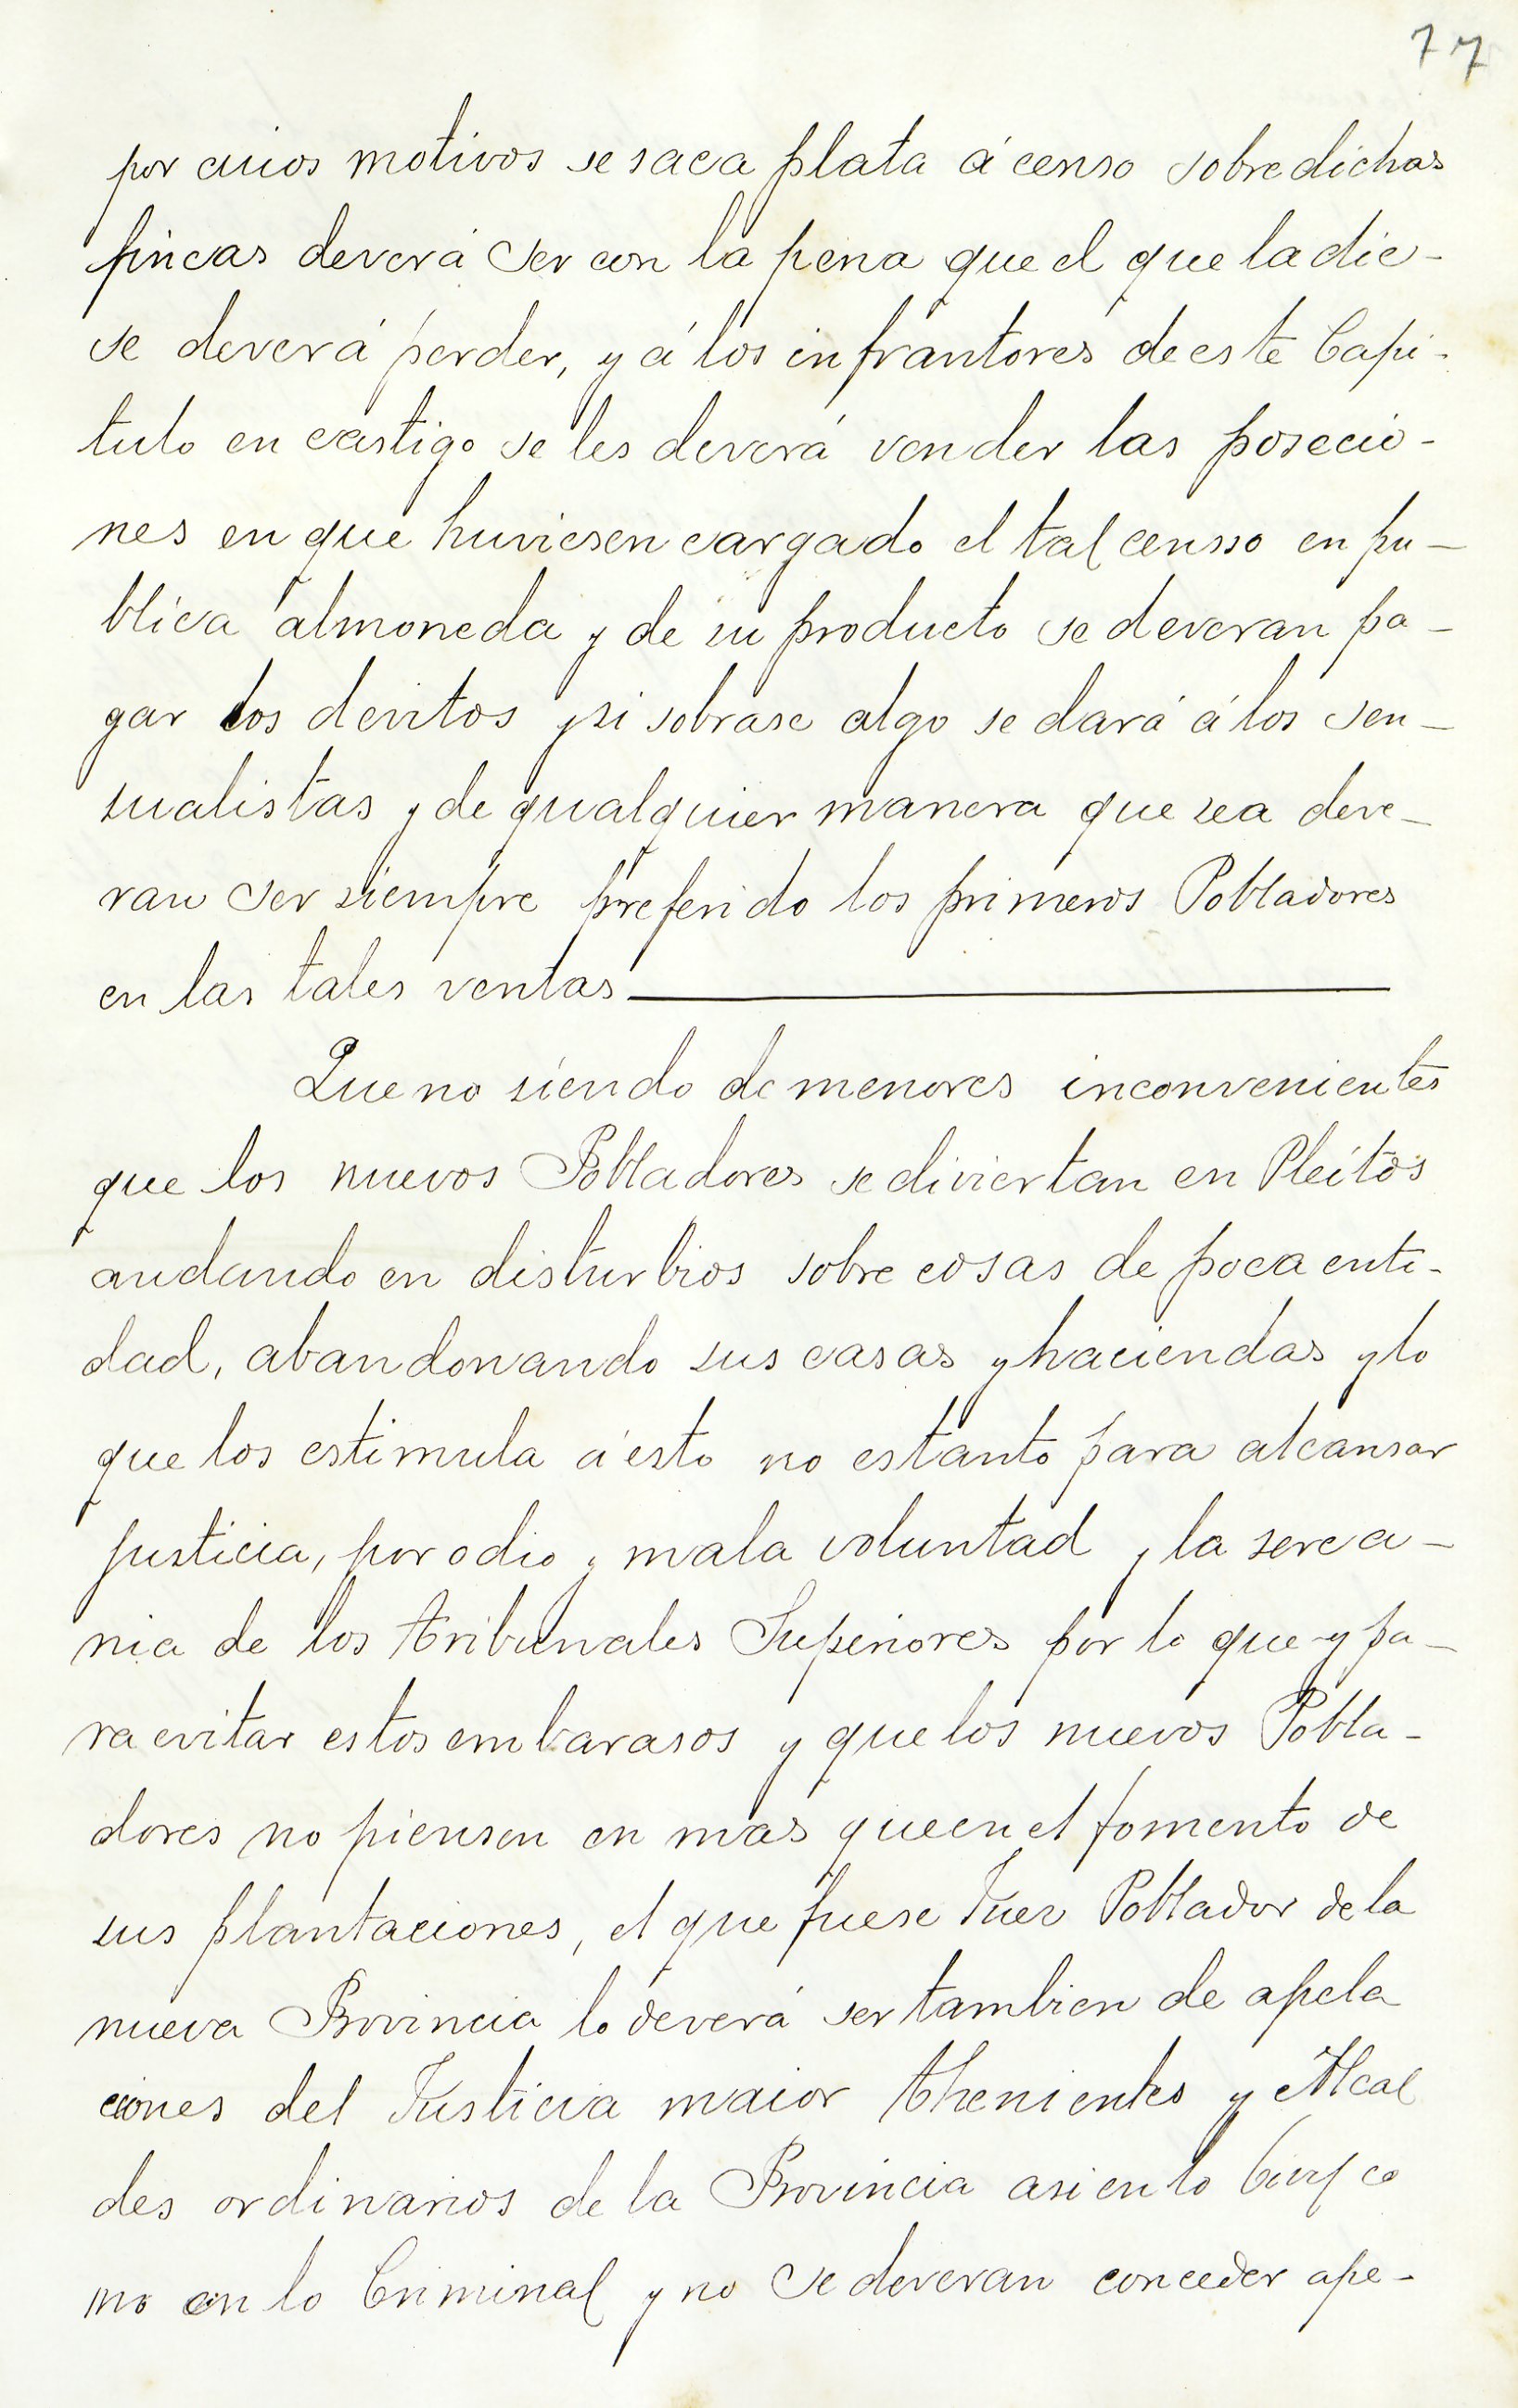 77
por cuios motivos se saca plata á censo sobre dichas
fincas deverá ser con la pena que el que la die-
se deverá perder, y á los infrantores de este Capi-
tulo en castigo se les deverá vender las posecio-
nes en que huviesen cargado el tal censso en pu-
blica almoneda y de su producto se deveran pa-
gar los devitos y si sobrase algo se dará á los sen-
sualistas y de qualquier manera que sea deve-
ran ser siempre preferido los primeros Pobladores
en las tales ventas
Que no siendo de menores inconvenientes
que los nuevos Pobladores se diviertan en Pleitos
andando en disturbios sobre cosas de poca enti-
dad, abandonando sus casas y haciendas y lo
que los estimula á esto no es tanto para alcansar
justicia, por odio y mala voluntad y la serca-
nia de los tribunales Superiores por lo que y pa-
ra evitar estos embarasos y que los nuevos Pobla-
dores no piensen en mas que en el fomento de
sus plantaciones, el que fuese Juez Poblador de la
nueva Provincia lo deverá ser tambien de apela
ciones del Justicia maior Thenientes y Alcal
des ordinarios de la Provincia asi en lo Civil co
mo en lo Criminal y no se deveran conceder ape-